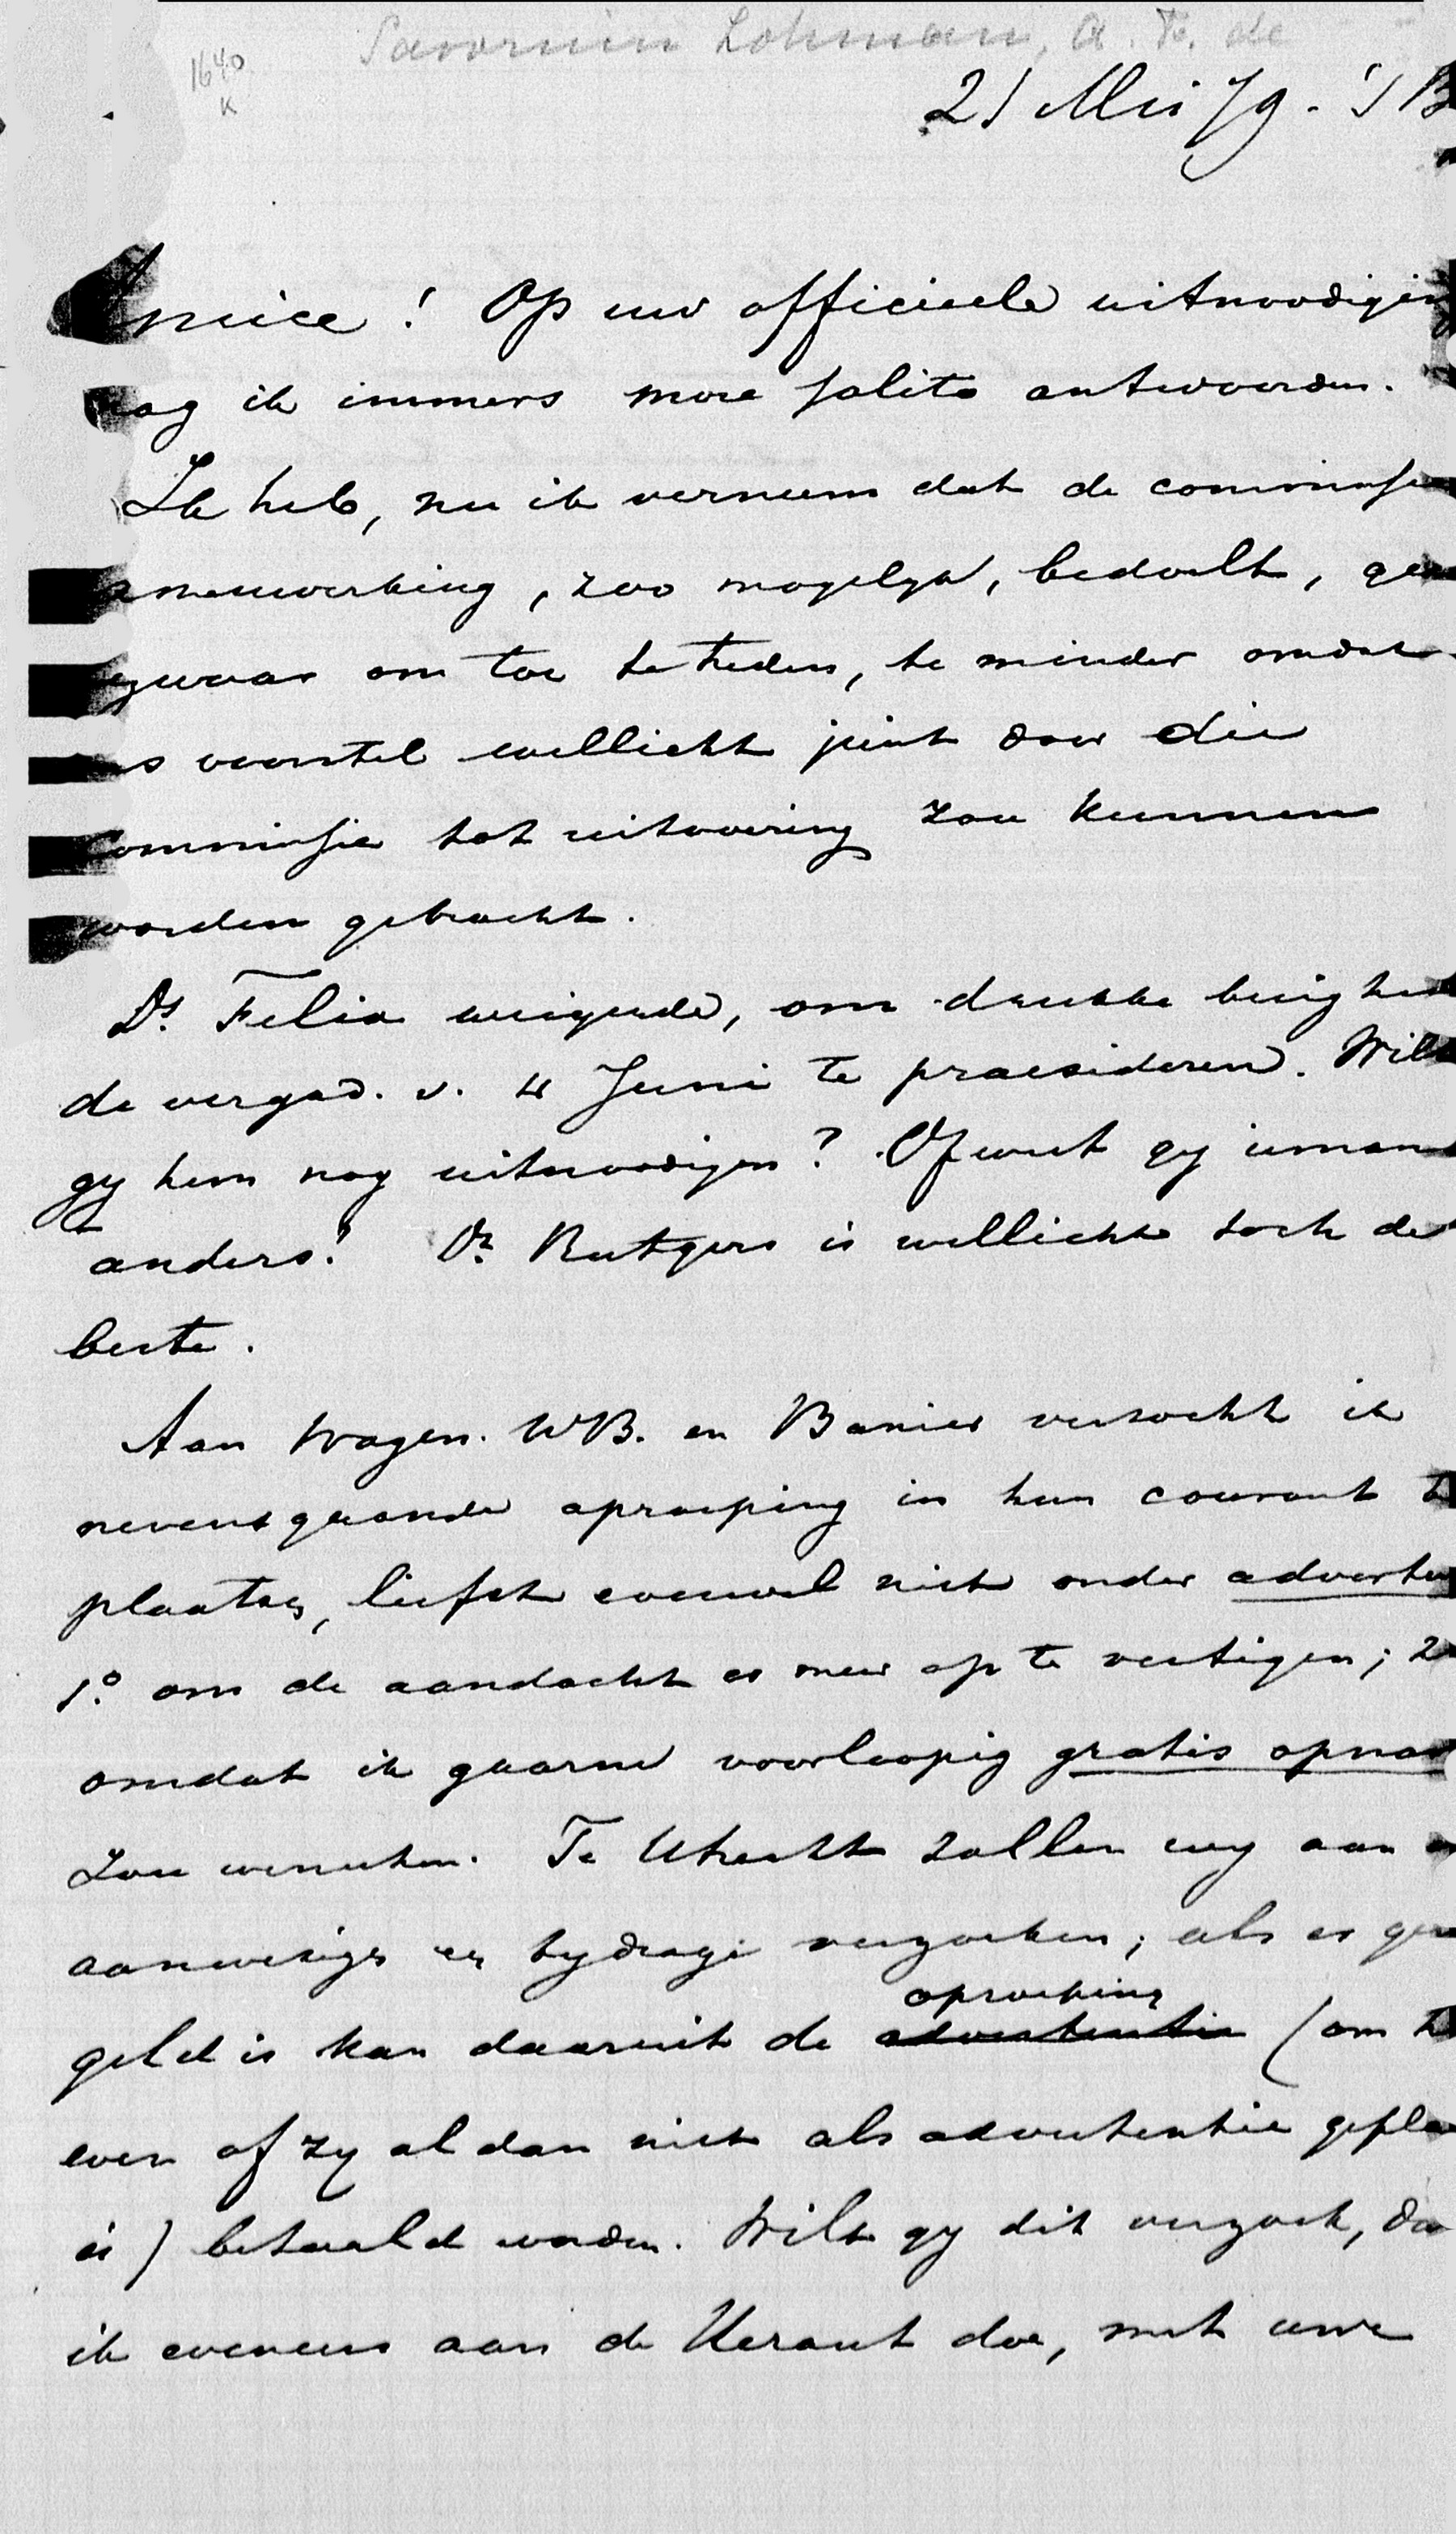 Savornin Lohman, A. F. de
1640
K
21 Mei 79. 'sB
Amice! Op uw officieele uitnoodiging
mag ik immers more solito antwoorden.
Ik heb, nu ik verneem dat de commissie
samenwerking, zoo mogelyk, bedoelt, geen
bezwaar om toe te treden, te minder omdat
ons voorstel wellicht juist door die
commissie tot uitvoering zou kunnen
worden gebracht.
Ds. Felix weigerde, om drukke bezigheden
de vergad. v. 4 Juni te praesideren. Wilt
gy hem nog uitnoodigen? Of weet gy iemand
anders? Dr. Rutgers is wellicht toch de
beste.
Aan Wagen. WB. en Banier verzocht ik
nevensgaande oproeping in hun courant te
plaatsen, liefst evenwel niet onder adverten
1.o om de aandacht er meer op te vestigen; 2
omdat ik gaarne voorloopig gratis opna
zou wenschen. Te Utrecht zullen wy aan
aanwezigen een bydrage verzoeken; als er ge
geld is kan daaruit de advertentie oproeping (om t
even of zy al dan niet als advertentie gepla
is) betaald worden. Wilt gy dit verzoek, da
ik eveneens aan de Heraut doe, met uwe